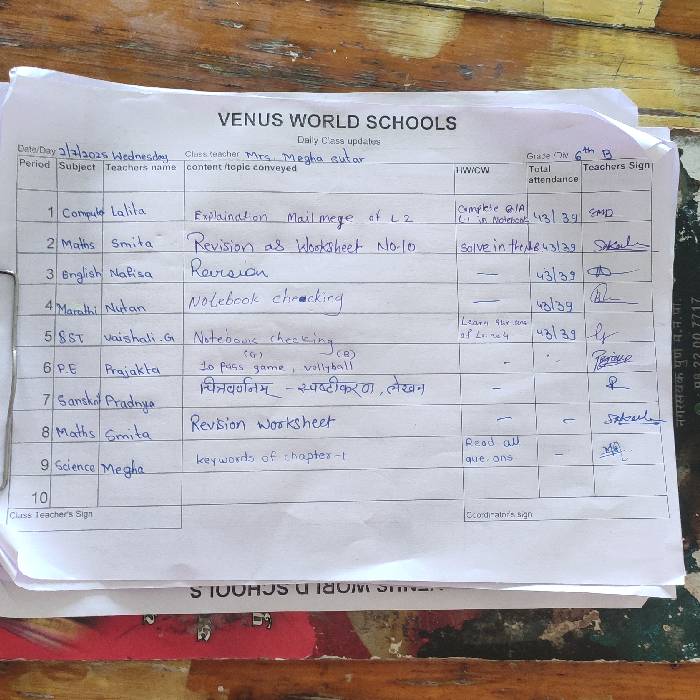 VENUS WORLD SCHOOLS
Daily Class updates
Date/Day 2/7/2025 Wednesday Class teacher Mrs. Megha Sutar Grade /DIV 6th B
Period Subject Teachers name content /topic conveyed HW/CW Total attendance Teachers Sign
1 Computer Lalita Explaination Mailmege of L2 Complete Q/A L1 in Notebook 43/39 SMD
2 Maths Smita Revision as Worksheet No-10 solve in the NB 43/39
3 English Nafisa Revision — 43/39
4 Marathi Nutan Notebook checking — 43/39
5 SST Vaishali.G Notebook checking Learn of 43/39
6 P.E Prajakta (G) 10 pass game, (B) vollyball - -
7 Sanskrit Pradnya चित्रवर्णनम् - स्पष्टीकरण, लेखन –
8 Maths Smita Revision Worksheet – –
9 Science Megha keywords of chapter-1 Read all que. ans –
10
Class Teacher's Sign Coordinator's sign
VENUS WORLD SCHOOLS